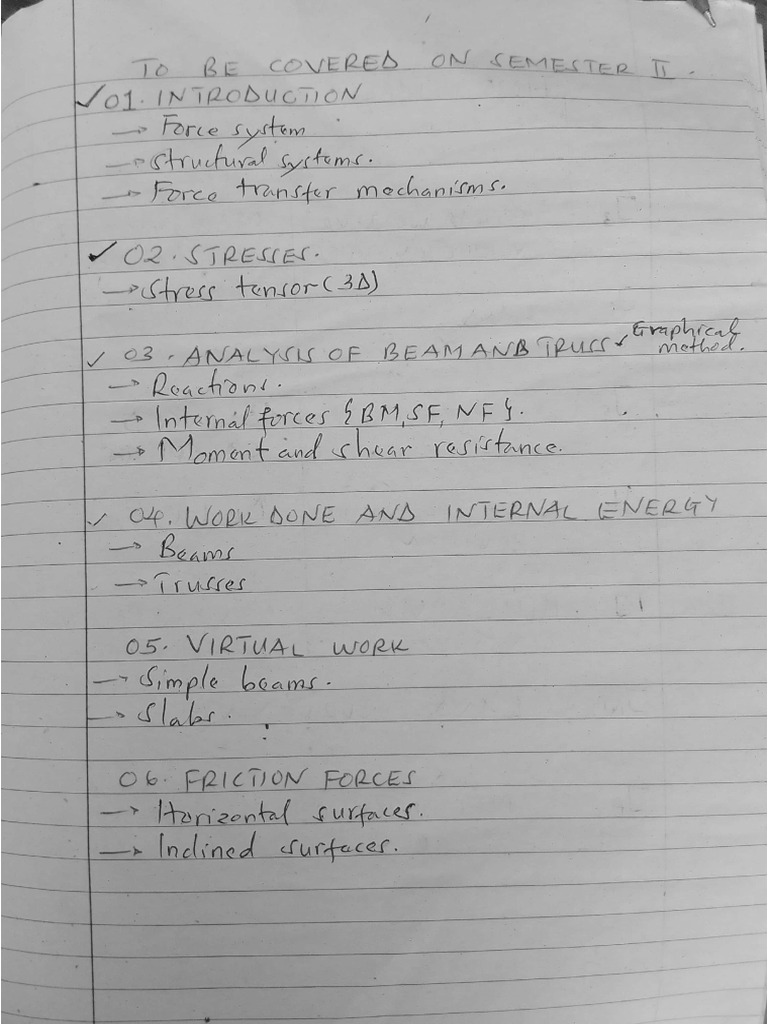 TO BE COVERED ON SEMESTER II.
✓01. INTRODUCTION
→ Force system
→ structural systems.
→ Force transfer mechanisms.
✓ 02. STRESSES.
→ stress tensor (3Δ)
✓ 03. ANALYSIS OF BEAM AND TRUSS ✓ Graphical method.
→ Reactions.
→ Internal forces { BM, SF, NF }.
→ Moment and shear resistance.
✓ 04. WORK DONE AND INTERNAL ENERGY
→ Beams
→ Trusses
05. VIRTUAL WORK
→ Simple beams.
→ Slabs.
06. FRICTION FORCES
→ Horizontal surfaces.
→ Inclined surfaces.